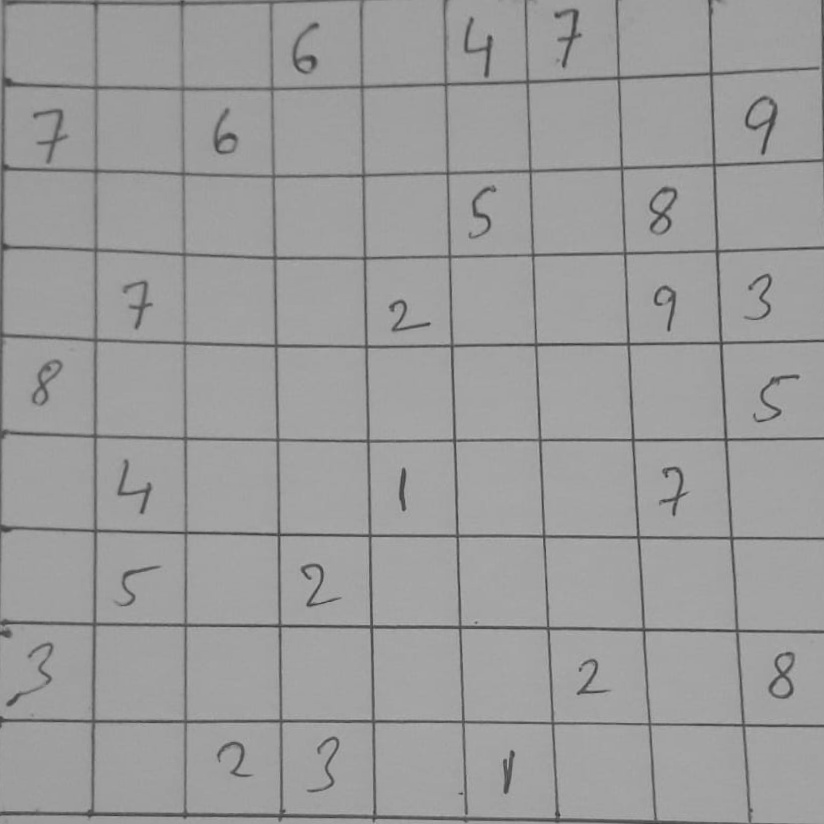 6 4 7
7 6 9
5 8
7 2 9 3
8 5
4 1 7
5 2
3 2 8
2 3 1